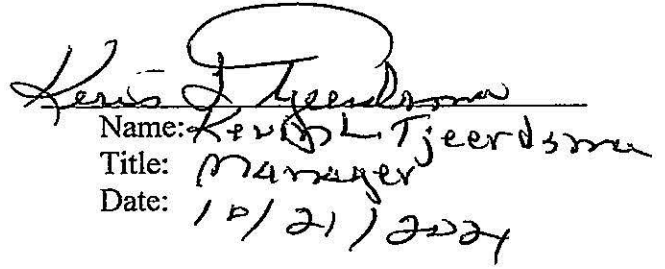 Kevin L Tjeerdsma
Name: Kevin L Tjeerdsma
Title: Manager
Date: 10/21/2024